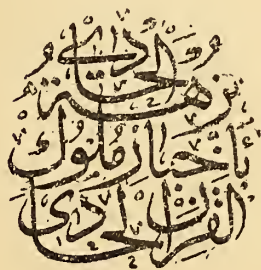 نزهة الحادي
بأخبار ملوك
القرن الحادي